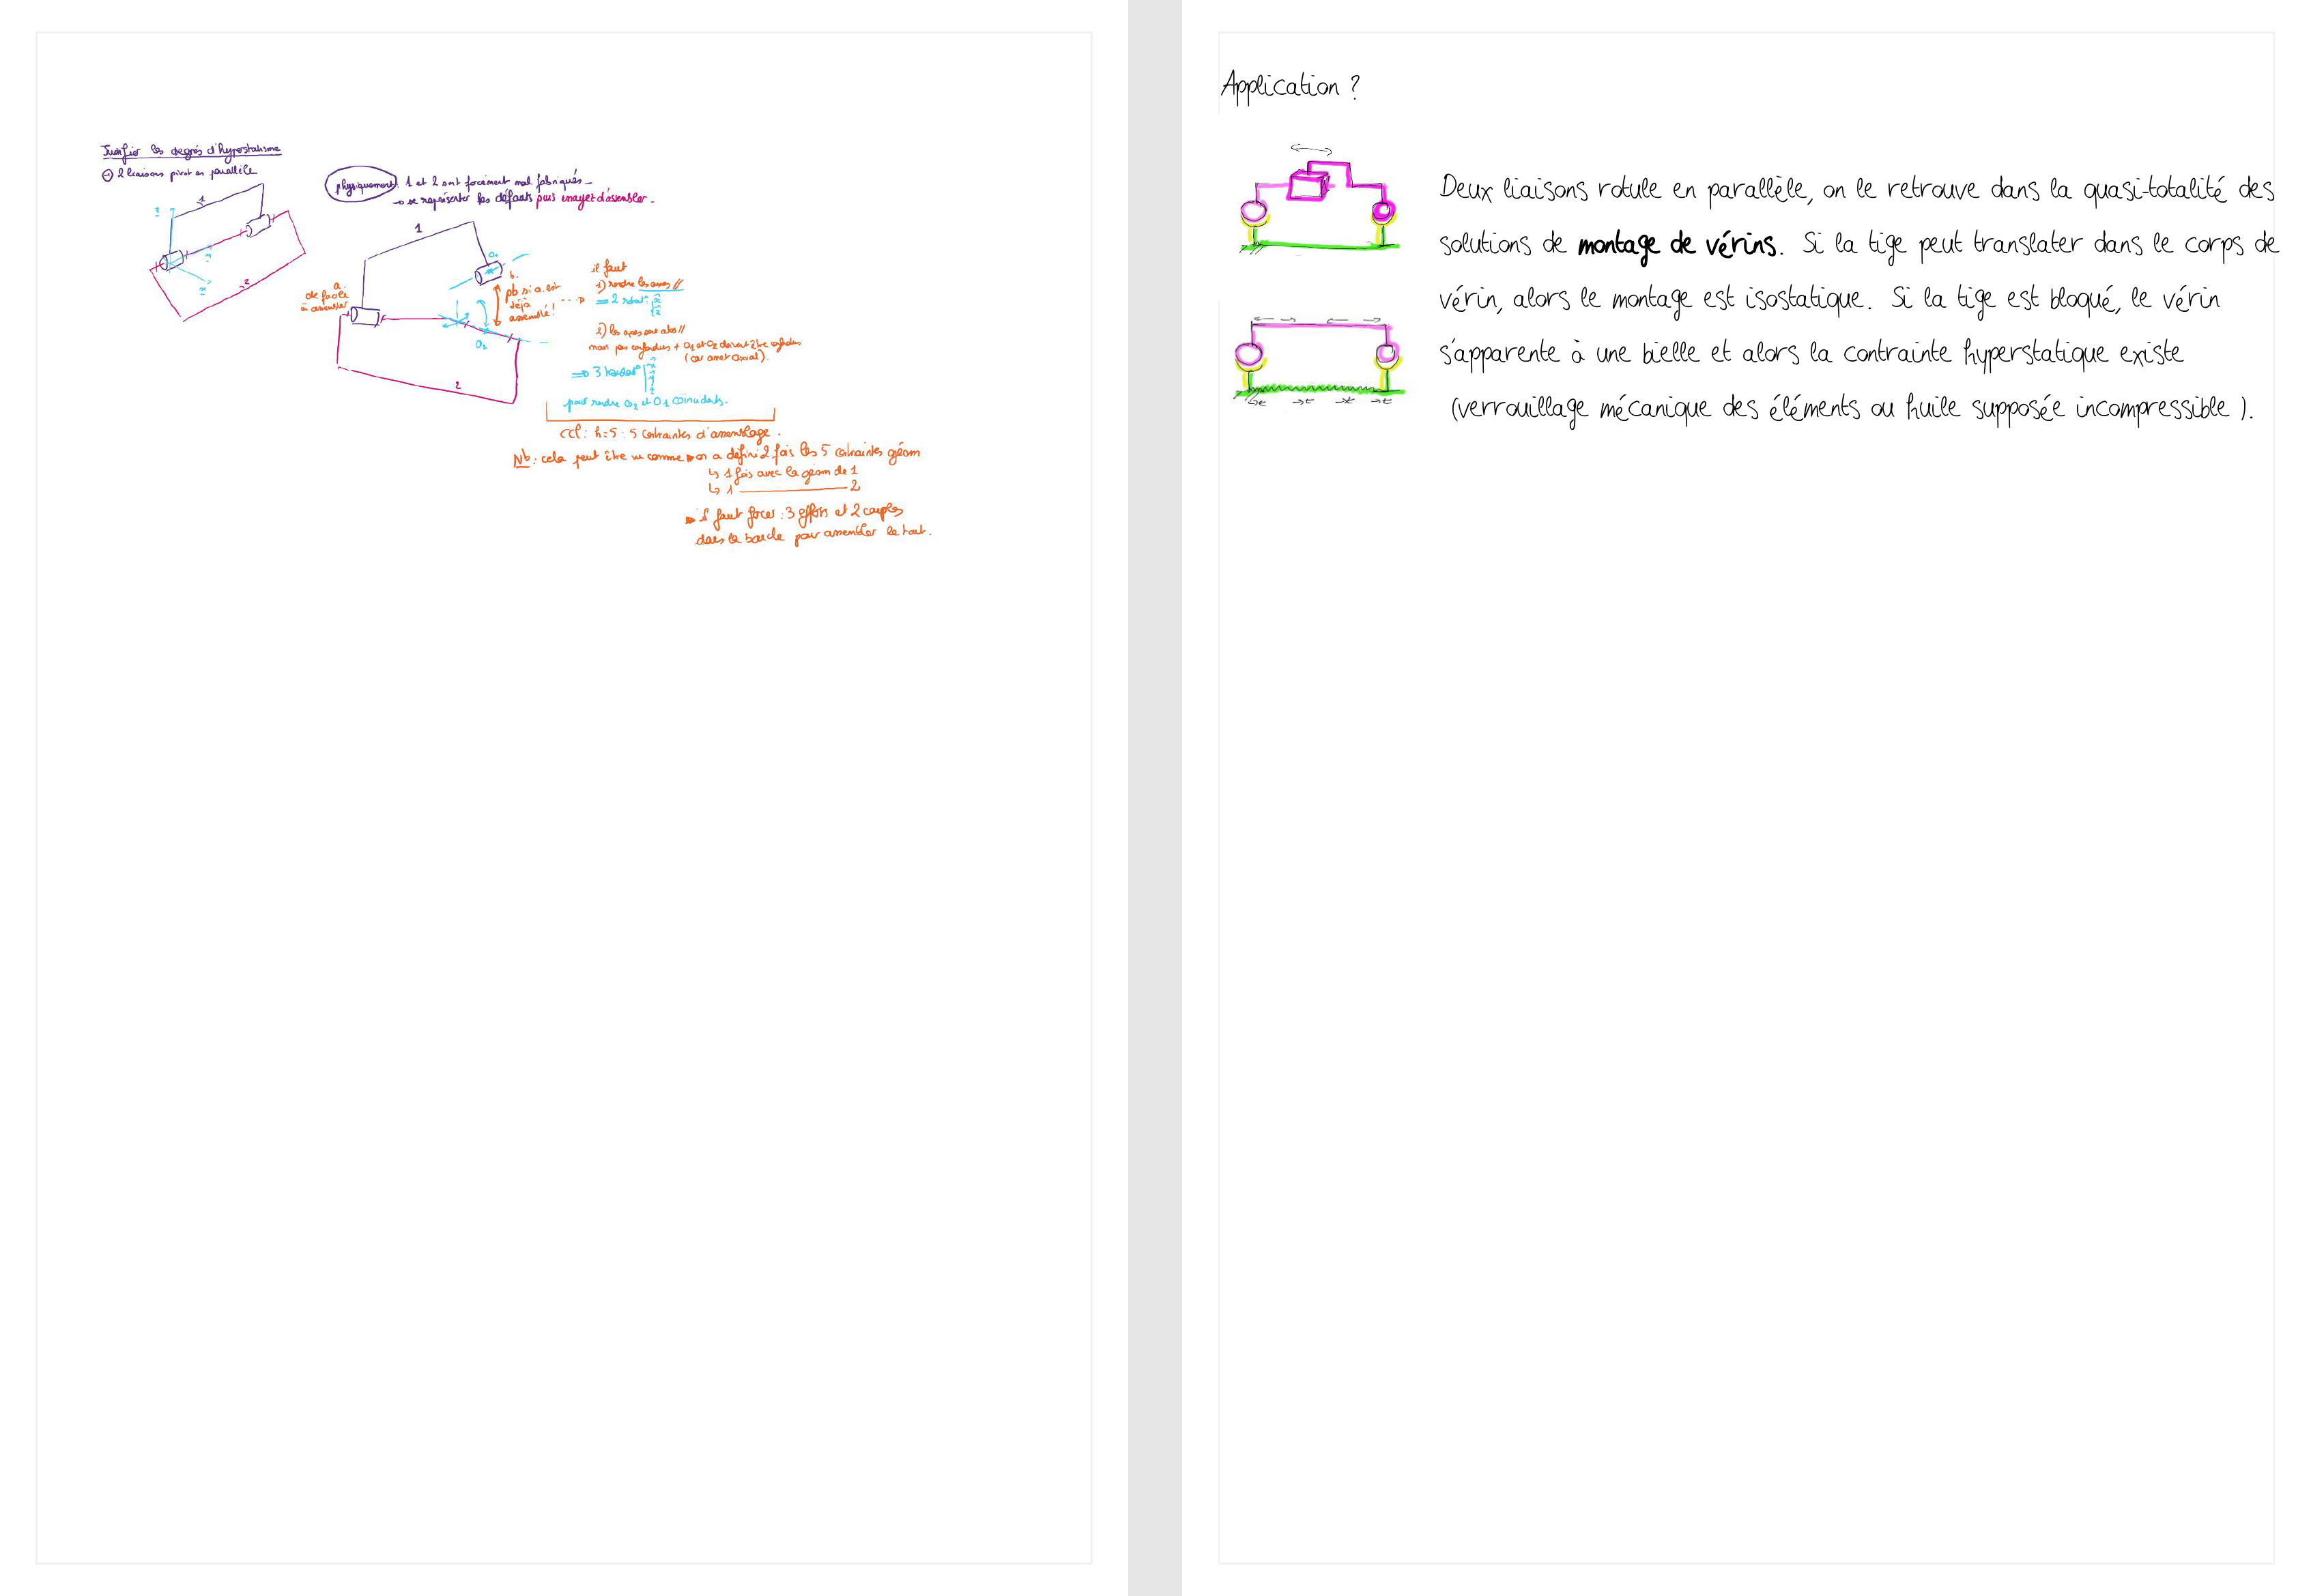 Justifier les degrés d'hyperstatisme
2 liaisons pivot en parallèle
1
2
physiquement : 1 et 2 sont forcément mal fabriqués
→ se représenter les défauts puis essayer d'assembler.
1
a.
de facile
à assembler
O1
b.
pb si a. est
déjà
assemblé !
O2
2
il faut
1) rendre les axes //
⇒ 2 rotat°
2) les axes sont alors //
mais pas confondus + O1 et O2 doivent être confondus
(car arrêt axial).
⇒ 3 translat°
pour rendre O2 et O1 coincidents.
CCl : h=5 : 5 contraintes d'assemblage.
Nb : cela peut être vu comme on a défini 2 fois les 5 contraintes géom
↳ 1 fois avec la géom de 1
↳ 1 ———— 2
il faut forcer : 3 efforts et 2 couples
dans la boucle pour assembler le tout.
Application ?
Deux liaisons rotule en parallèle, on le retrouve dans la quasi-totalité des
solutions de montage de vérins. Si la tige peut translater dans le corps de
vérin, alors le montage est isostatique. Si la tige est bloqué, le vérin
s'apparente à une bielle et alors la contrainte hyperstatique existe
(verrouillage mécanique des éléments ou huile supposée incompressible ).